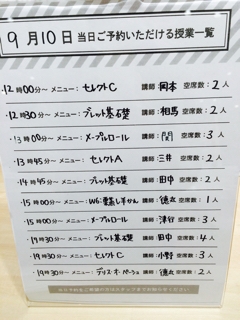 9月10日 当日ご予約いただける授業一覧
12時00分〜 メニュー: セレクトC 講師: 岡本 空席数: 2人
12時30分〜 メニュー: ブレッド基礎 講師: 相馬 空席数: 2人
13時00分〜 メニュー: メープルロール 講師: 関 空席数: 3人
13時45分〜 メニュー: セレクトA 講師: 三井 空席数: 2人
14時45分〜 メニュー: ブレッド基礎 講師: 田中 空席数: 2人
15時00分〜 メニュー: 講師: 徳立 空席数: 1人
15時00分〜 メニュー: メープルロール 講師: 津行 空席数: 3人
19時30分〜 メニュー: ブレッド基礎 講師: 田中 空席数: 4人
19時30分〜 メニュー: セレクトC 講師: 小野 空席数: 3人
19時30分〜 メニュー: 講師: 徳立 空席数: 2人